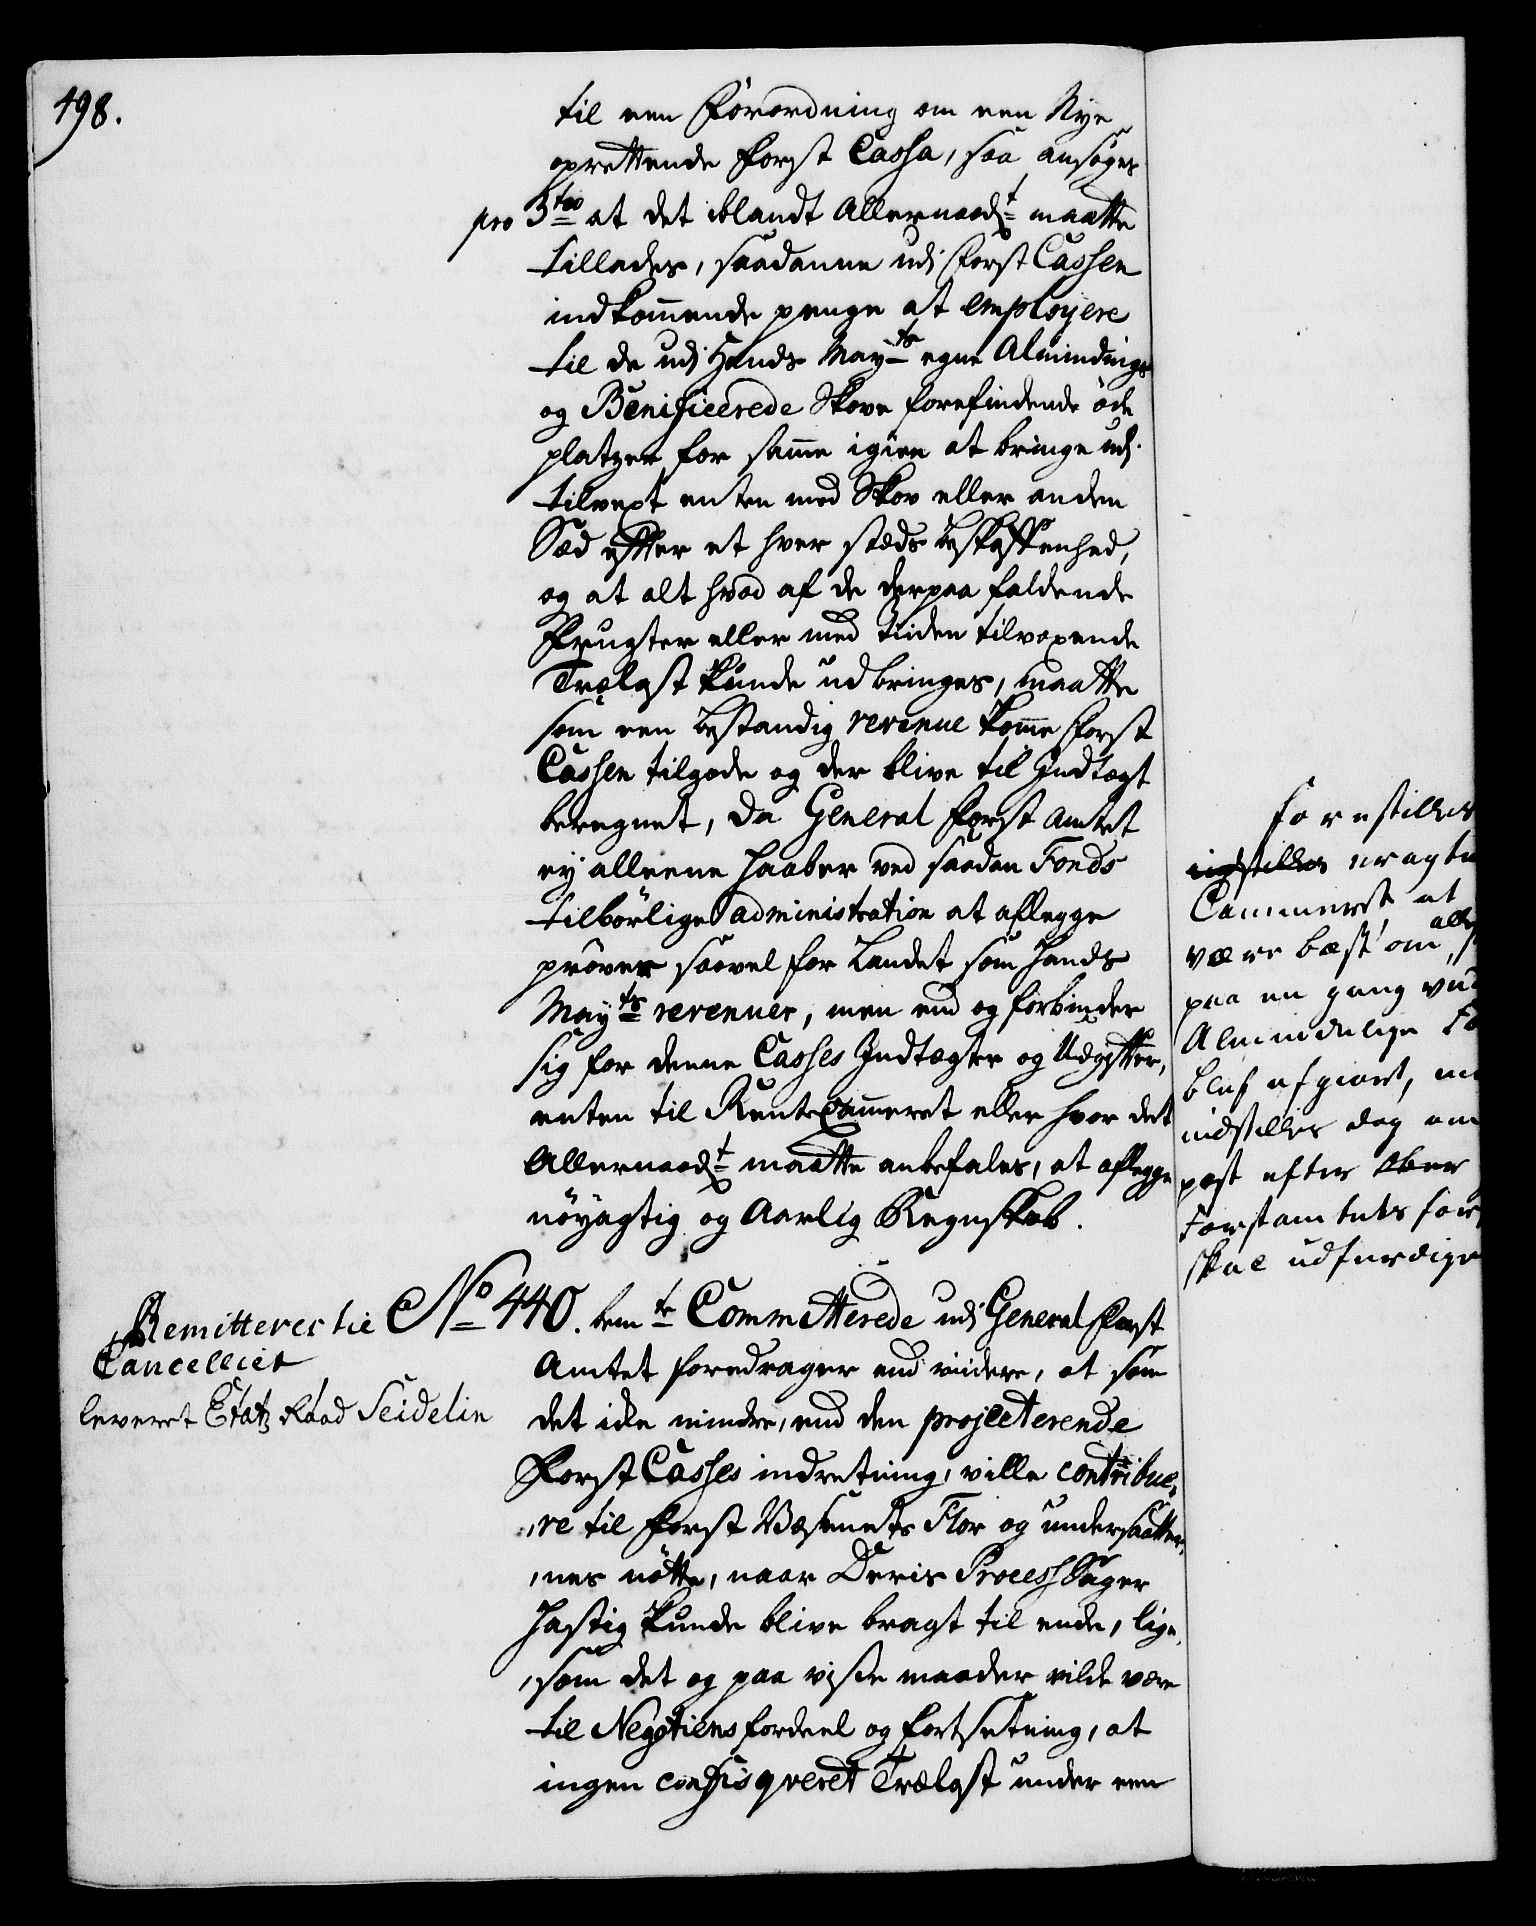 498.
til een Forordning om een Nye
oprettende Forst Cassa, saa ansøges
pro 3tio at det iblandt Allernaadt maatte
tillades, saadanne udj Forst Cassen
indkom̄ende penge at employere
til de udj Hands Mayts egne Alminding
og Benificerede Skove forefindende øde
platzer for sam̄e igien at bringe udj
tilvext enten med Skov eller anden
Sæd efter et hver stæds beskaffenhed,
og at alt hvad af de derpaa faldende
Frugter eller med tiiden tilvoxende
Trælast kunde udbringes, maatte
som een bestandig revenue kom̄e Forst
Cassen tilgode og der blive til Indtægt
beregnet, da General Forst Amtet
ej alleene haaber ved saadan Fonds
tilbørlige administration at aflegge
prøver saavel for Landet som Hands
Mayts revenuer, men end og forbinder
sig for denne Casses Indtægter og Udgifter,
enten til Rentecam̄eret eller hvor det
Allernaadt maatte anbefales, at aflegge
nøyagtig og Aarlig Regnskab.
Remitteres til
Cancelliet
leveret Etatz Raad Seidelin
No 440. bemte Committerede udj General Forst
Amtet foredrager end viidere, at som
det icke mindre, end den projecterende
Forst Casses indretning, ville contribue,
,re til Forst Væsenets Flor og undersaatter,
,nes nøtte, naar Deris Process Sager
hastig kunde blive bragt til ende, lige,
,som det og paa visse maader vilde være
til Negotiens fordeel og fortsetning, at
ingen confisqveret Trælast under een
forestilles
indstilles eragte
Cammeret at
være bæst om alle
paa en gang
Almindelige
blef afgiort,
indstilles dog
post efter Ober
Forstamtets for
skal udferdige